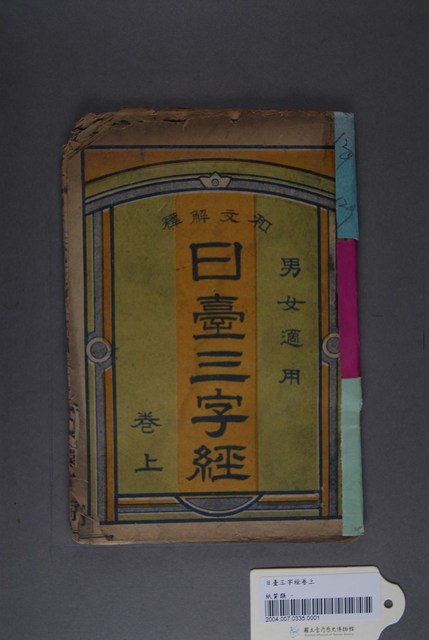 和文解釋
男女適用
日臺三字經
卷上
日臺三字經卷上
紙質類 -
2004.007.0335.0001
國立臺灣歷史博物館